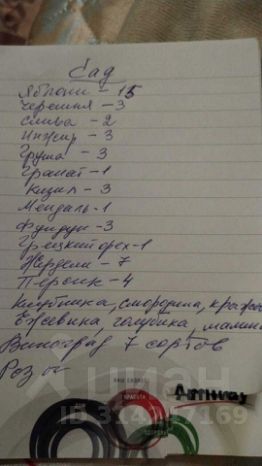 Сад
Яблони - 15
Черешня - 3
Слива - 2
Инжир - 3
Груша - 3
Гранат - 1
Кизил - 3
Мендаль - 1
Фундук - 3
Грецкий орех - 1
Жердели - 7
Персик - 4
Клубника, смородина,
Ежевина, голубика, малина
Виноград 7 сортов
Розы
Amway
циан